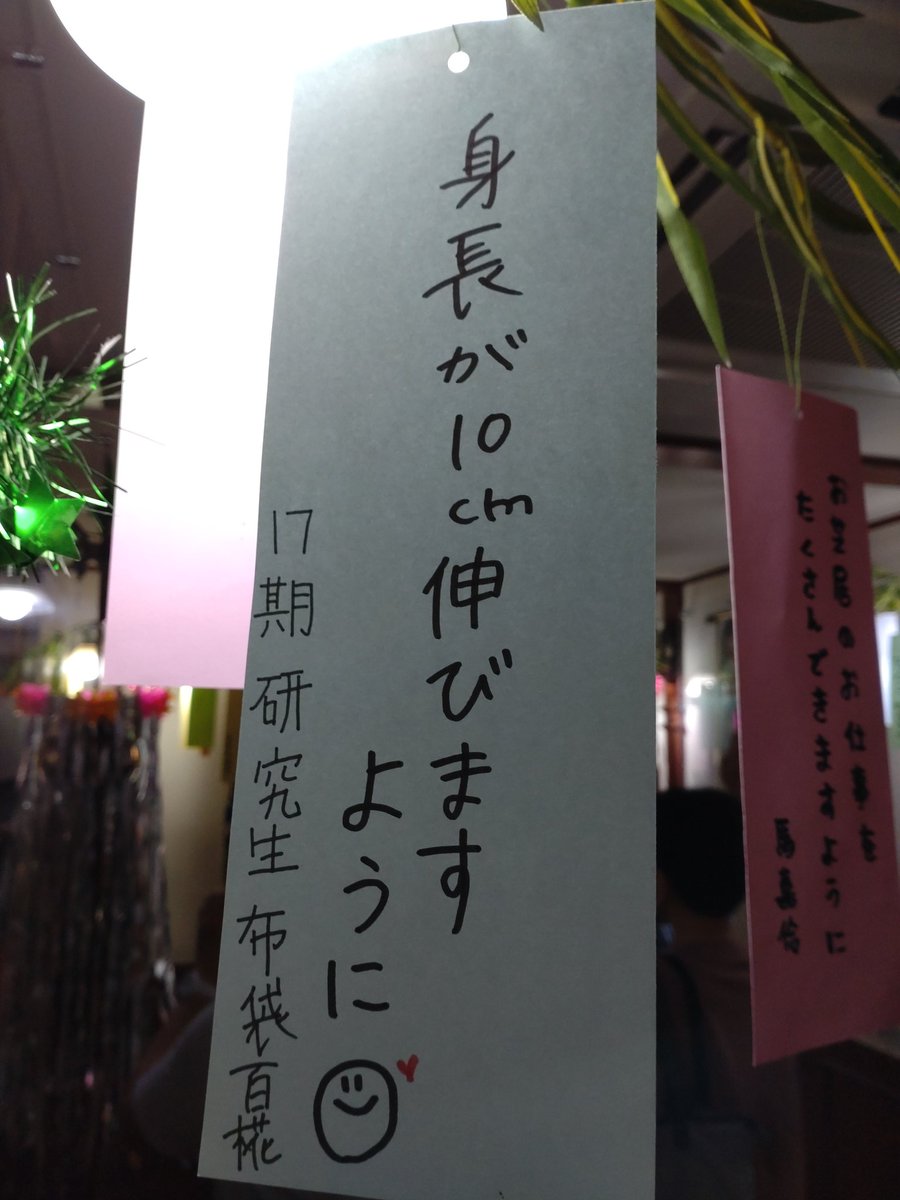 身長が10cm伸びます
ように
17期 研究生 布袋百椛
お芝居のお仕事を
たくさんできますように